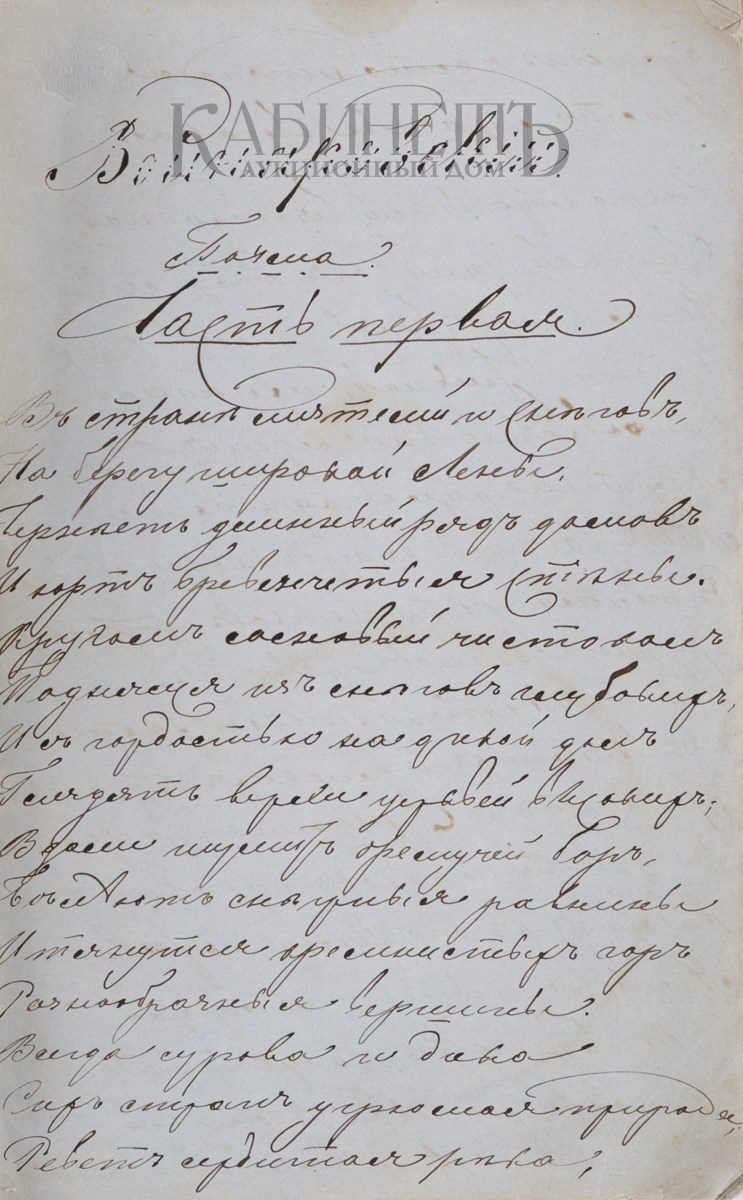 КАБИНЕТЪ
АУКЦИОННЫЙ ДОМ
Войнаровскій.
Поэма.
Часть первая.
Въ странѣ мятелей и снѣговъ,
На берегу широкой Лены,
Чернѣетъ длинный рядъ домовъ
И юртъ бревенчетыя стѣны.
Кругомъ сосновый чистоколъ
Поднялся изъ снѣговъ глубокихъ,
И съ гордостью на дикой долъ
Глядятъ верхи церквей высокихъ;
Вдали шумитъ дремучей боръ,
Бѣлѣютъ снѣжныя равнины
И тянутся кремнистыхъ горъ
Разнообразныя вершины.
Всегда сурова и дика
Сихъ странъ угрюмая природа;
Реветъ сердитая рѣка,